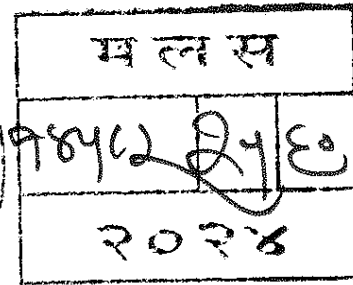 म ल स
१४५८२ २५ ६०
२०२४